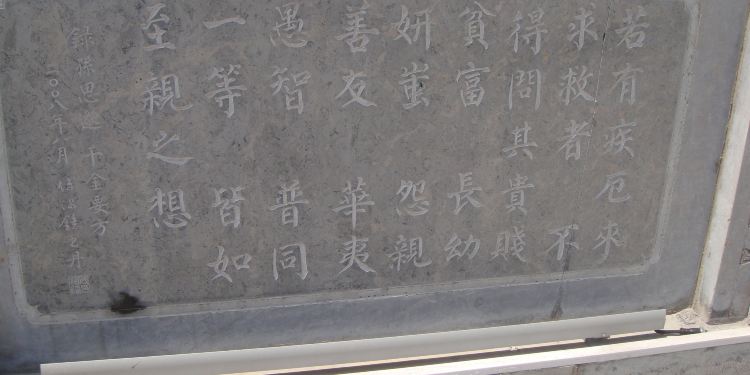 若有疾厄來
求救者 不
得問其貴賤
貧富 長幼
妍蚩 怨親
善友 華夷
愚智 普同
一等 皆如
至親之想
録孫思邈 千金要方
二〇〇八年